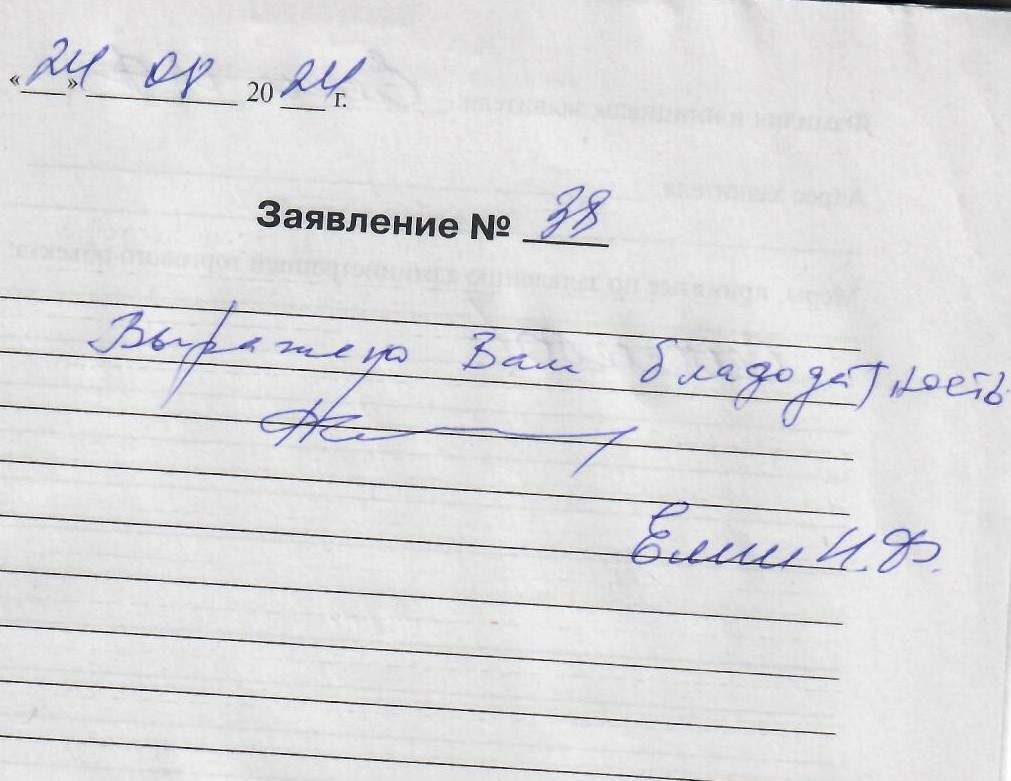 «24» 08 2024 г.
Заявление № 38
Выражаю Вам благодатность
Елин Н.Ф.